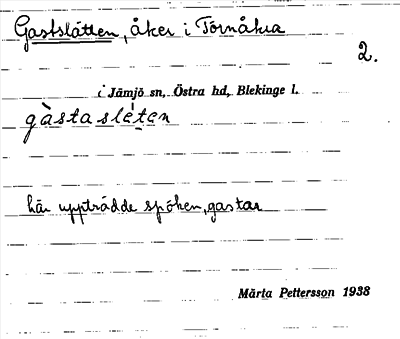 Gastslätten, åker i Törnåkra
2.
i Jämjö sn, Östra hd, Blekinge l.
gàstasléten
här uppträdde spöken, gastar
Märta Pettersson 1938